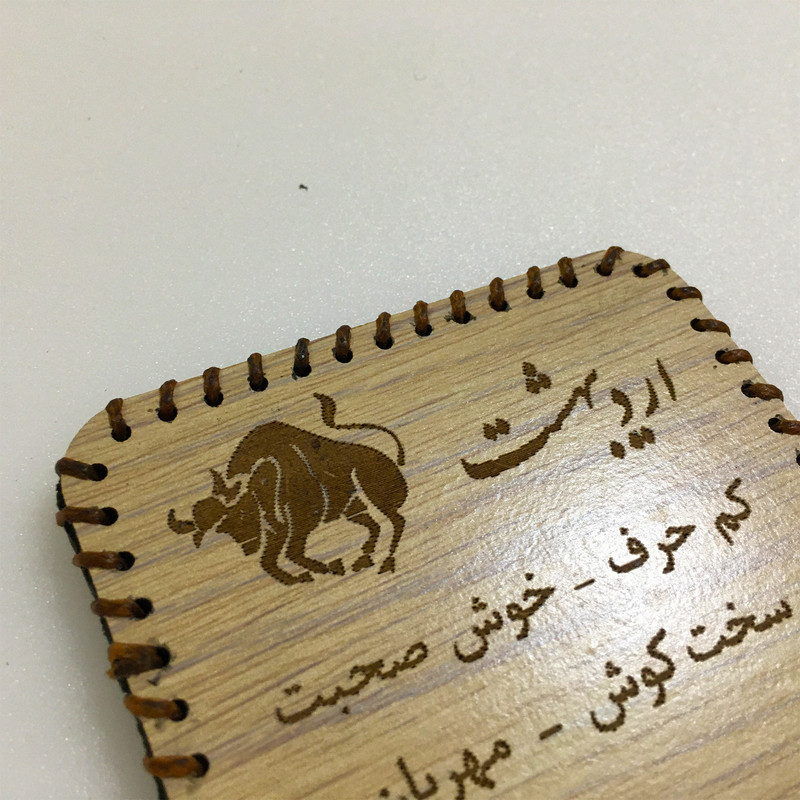 اردیبهشت
کم حرف - خوش صحبت
سخت کوش - مهربان